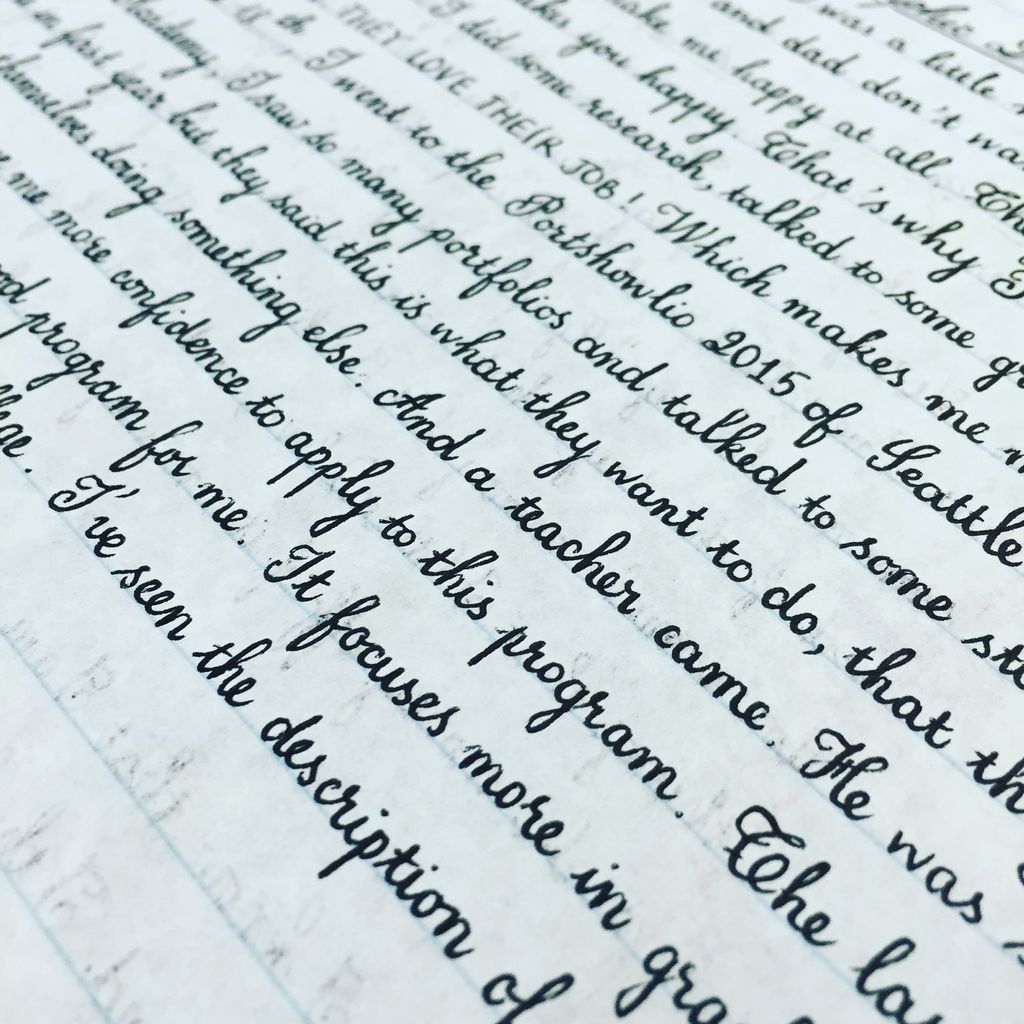 was a little
and dad don't wa
make me happy at all. Th
you happy. That's why I
I did some research, talked to some gr
THEY LOVE THEIR JOB! Which makes me
th I went to the Portshowlio 2015 of Seattle
I saw so many portfolios and talked to some st
in first year but they said this is what they want to do, that th
themselves doing something else. And a teacher came. He was
me more confidence to apply to this program. The la
program for me. It focuses more in gra
I've seen the description of